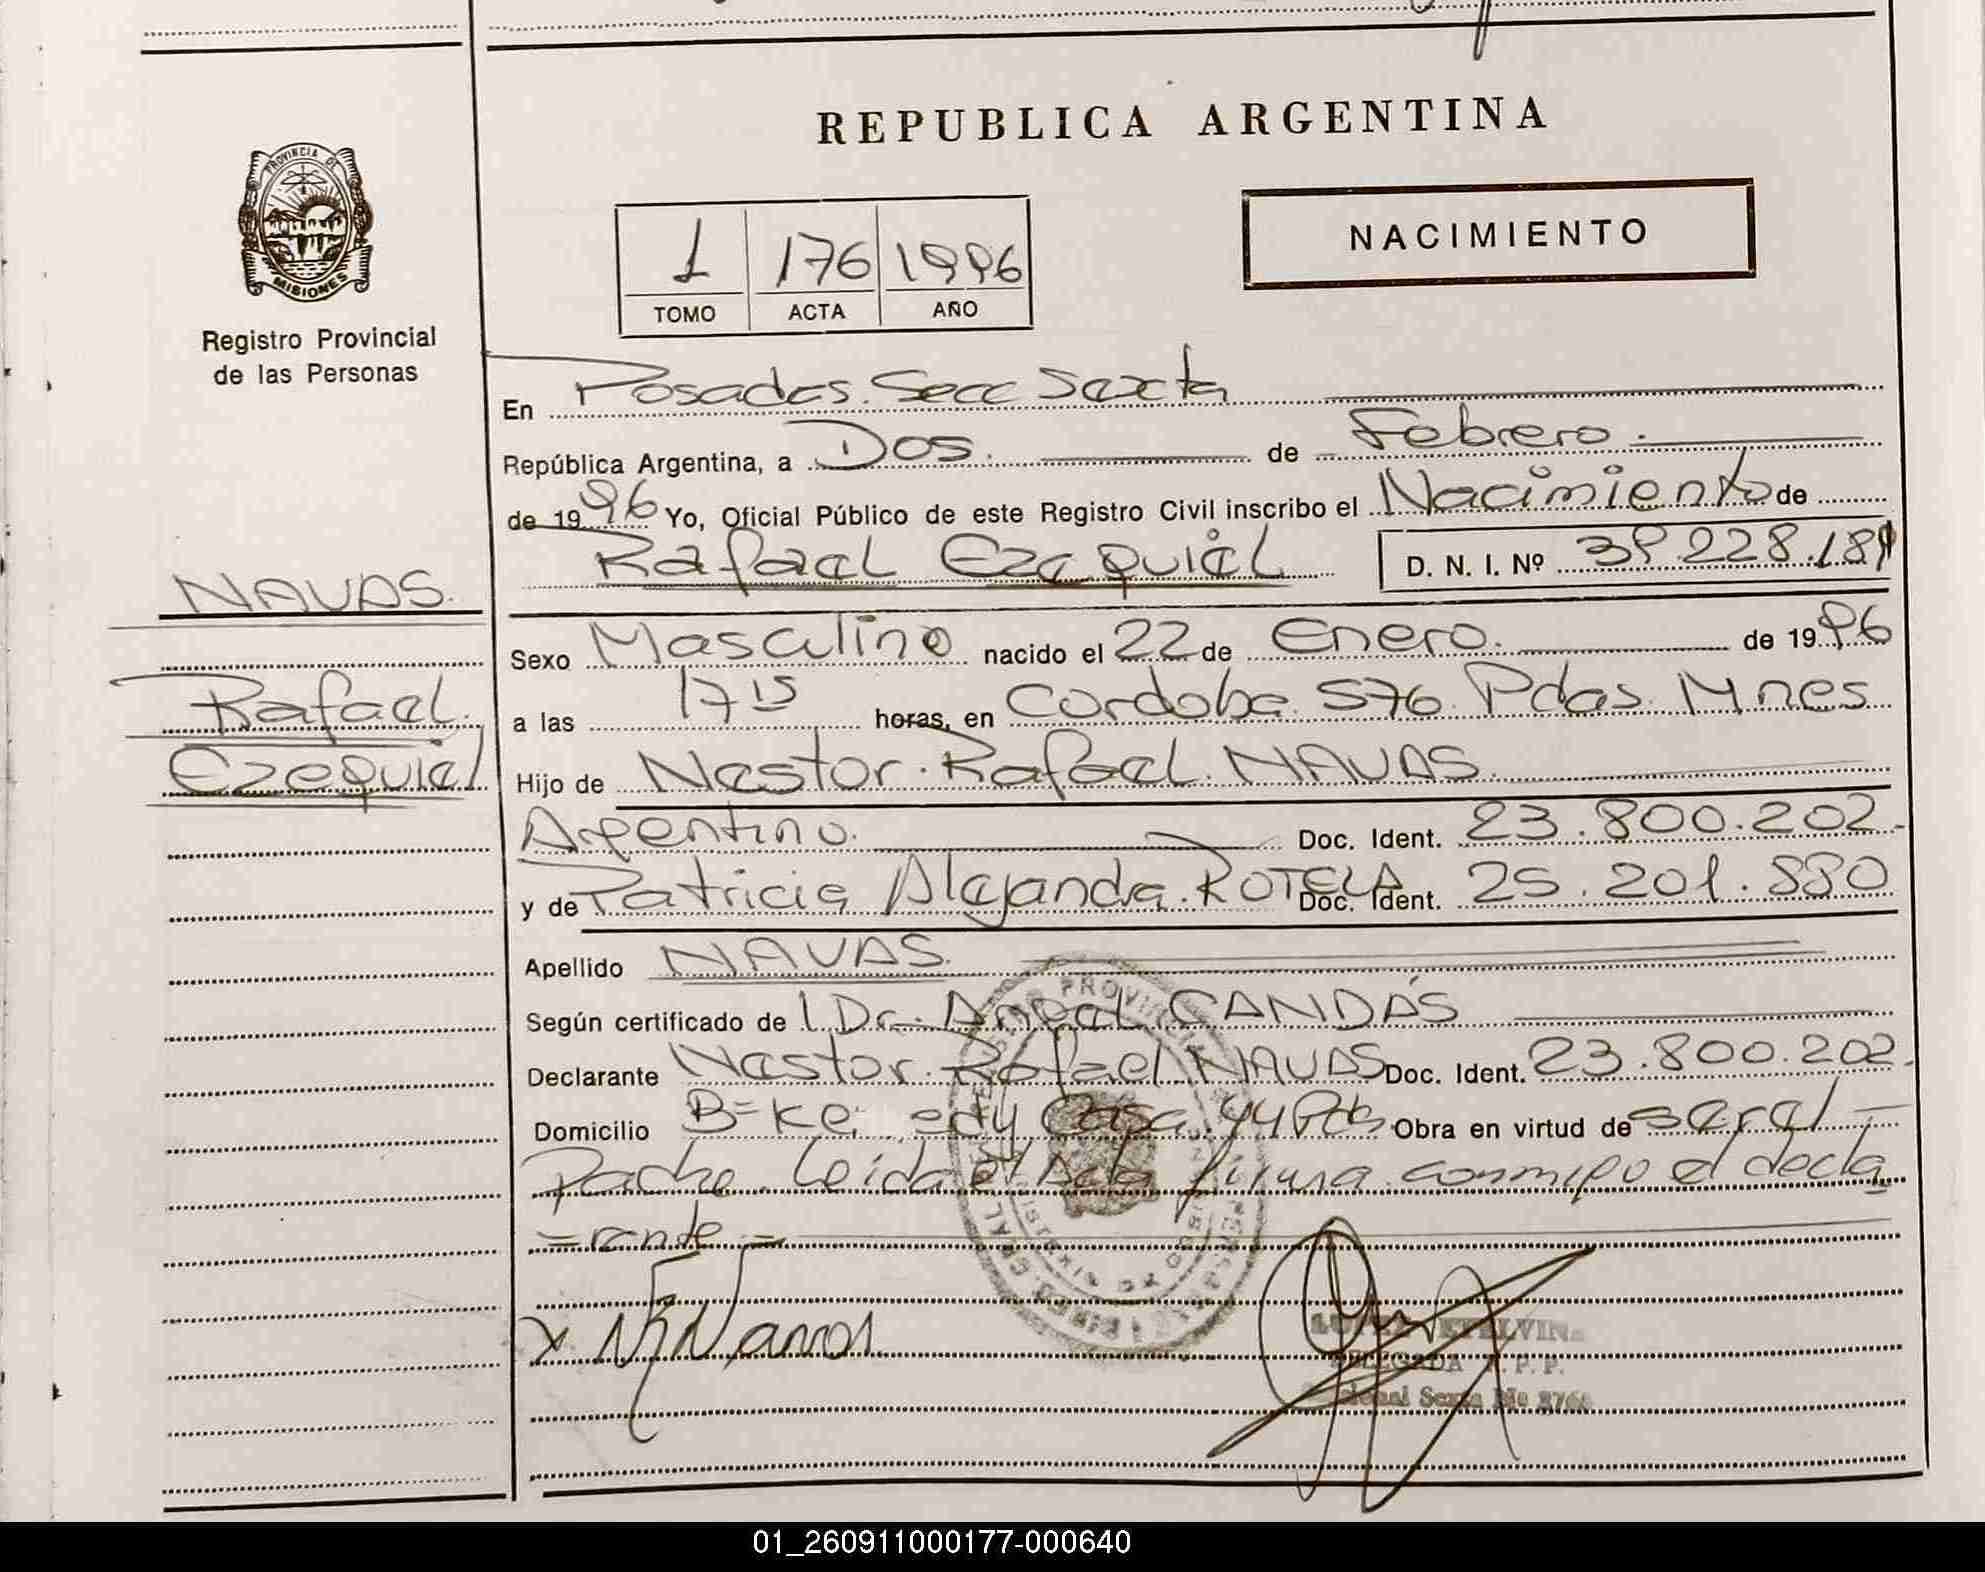 REPUBLICA ARGENTINA
PROVINCIA DE
MISIONES
Registro Provincial
de las Personas
1 176 1996
TOMO ACTA AÑO
NACIMIENTO
En Posadas. Secc Sexta
República Argentina, a Dos. de Febrero.
de 1996 Yo, Oficial Público de este Registro Civil inscribo el Nacimiento de
Rafael Ezequiel D. N. I. Nº
NAVAS.
Rafael.
Ezequiel
Sexo Masculino nacido el 22 de Enero. de 1996
a las 17 15 horas, en Cordoba 576 Pdas. Mnes
Hijo de Nestor. Rafael. NAVAS.
Argentino. Doc. Ident. 23.800.202.
y de Patricia Alejandra. ROTELA Doc. Ident. 25.201.
Apellido NAVAS.
Según certificado de Dr. Angel CANDÁS
Declarante Nestor. Rafael NAVAS Doc. Ident. 23.800.202.
Domicilio Bº Kennedy Casa 44 Pdas Obra en virtud de ser el
Padre. Leida el Acta firma conmigo el decla
=rante=
x NRNavas
DELEGADA R.P.P.
Seccional Sexta
01_260911000177-000640